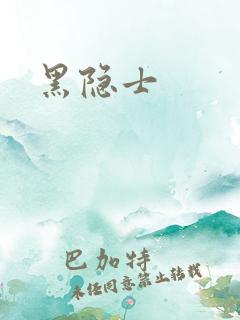 黑隐士
巴加特
未经同意禁止转载